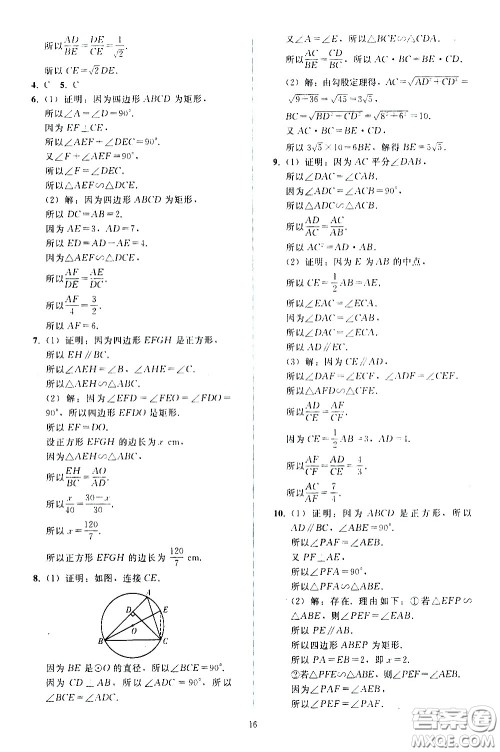 所以 AD/BE = DE/CE = 1/√2.
所以 CE=√2DE.
4. C　5. C
6. (1) 证明：因为四边形 ABCD 为矩形，
所以∠A=∠D=90°.
因为 EF⊥CE，
所以∠AEF+∠DEC=90°.
又∠F+∠AEF=90°，
所以∠F=∠DEC.
所以△AEF∽△DCE.
(2) 解：因为四边形 ABCD 为矩形，
所以 DC=AB=2.
因为 AE=3，AD=7，
所以 ED=AD-AE=4.
因为△AEF∽△DCE，
所以 AF/DE = AE/DC.
所以 AF/4 = 3/2.
所以 AF=6.
7. (1) 证明：因为四边形 EFGH 是正方形，
所以 EH∥BC.
所以∠AEH=∠B，∠AHE=∠C.
所以△AEH∽△ABC.
(2) 解：因为∠EFD=∠FEO=∠FDO=
90°，所以四边形 EFDO 是矩形.
所以 EF=DO.
设正方形 EFGH 的边长为 x cm，
因为△AEH∽△ABC，
所以 EH/BC = AO/AD.
所以 x/40 = (30-x)/30.
所以 x=120/7.
所以正方形 EFGH 的边长为 120/7 cm.
8. (1) 证明：如图，连接 CE.
A
D
E
O
B
C
因为 BE 是⊙O 的直径，所以∠BCE=90°.
因为 CD⊥AB，所以∠ADC=90°，所以
∠BCE=∠ADC.
又 ∠A=∠E，所以 △BCE∽△CDA.
所以 AC/BE = CD/BC. 所以 AC·BC=BE·CD.
(2) 解：由勾股定理得，AC=√(AD²+CD²)=
√(9+36)=√45=3√5，
BC=√(BD²+CD²)=√(8²+6²)=10.
所以 3√5×10=6BE，解得 BE=5√5.
9. (1) 证明：因为 AC 平分∠DAB，
所以∠DAC=∠CAB.
因为∠ADC=∠ACB=90°，
所以△ADC∽△ACB.
所以 AD/AC = AC/AB.
所以 AC²=AB·AD.
(2) 证明：因为 E 为 AB 的中点，
所以 CE=1/2AB=AE.
所以∠EAC=∠ECA.
因为∠DAC=∠CAB，
所以∠DAC=∠ECA.
所以 AD∥EC.
(3) 解：因为 CE∥AD，
所以∠DAF=∠ECF，∠ADF=∠CEF.
所以△AFD∽△CFE.
所以 AD/CE = AF/CF.
因为 CE=1/2AB=3，AD=4，
所以 AF/CF = AD/CE = 4/3.
所以 AC/AF = 7/4.
10. (1) 证明：因为 ABCD 是正方形，所以
AD∥BC，∠ABE=90°.
所以∠PAF=∠AEB.
又 PF⊥AE，
所以∠PFA=90°.
所以△PFA∽△ABE.
(2) 解：存在. 理由如下：①若△EFP∽
△ABE，则∠PEF=∠EAB.
所以 PE∥AB.
所以四边形 ABEP 为矩形.
所以 PA=EB=2，即 x=2.
16